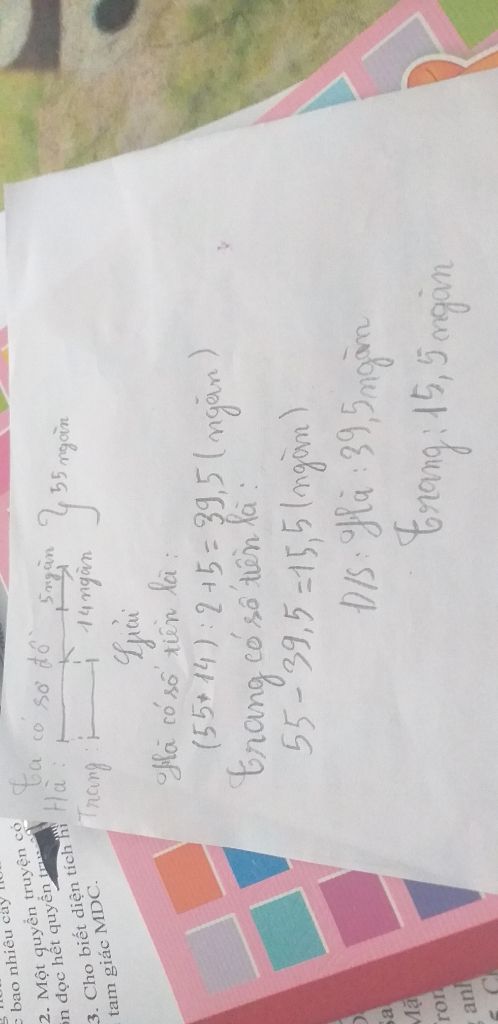 Ta có sơ đồ
Hà : 5ngàn
Trang : 14 ngàn } 55 ngàn
Giải
Hà có số tiền là :
(55+14) : 2 +5 = 39,5 (ngàn)
Trang có số tiền là :
55 - 39,5 = 15,5 (ngàn)
Đ/S : Hà : 39,5 ngàn
Trang : 15,5 ngàn
bao nhiêu cây
2. Một quyển truyện có
n đọc hết quyển
3. Cho biết diện tích
tam giác MDC.